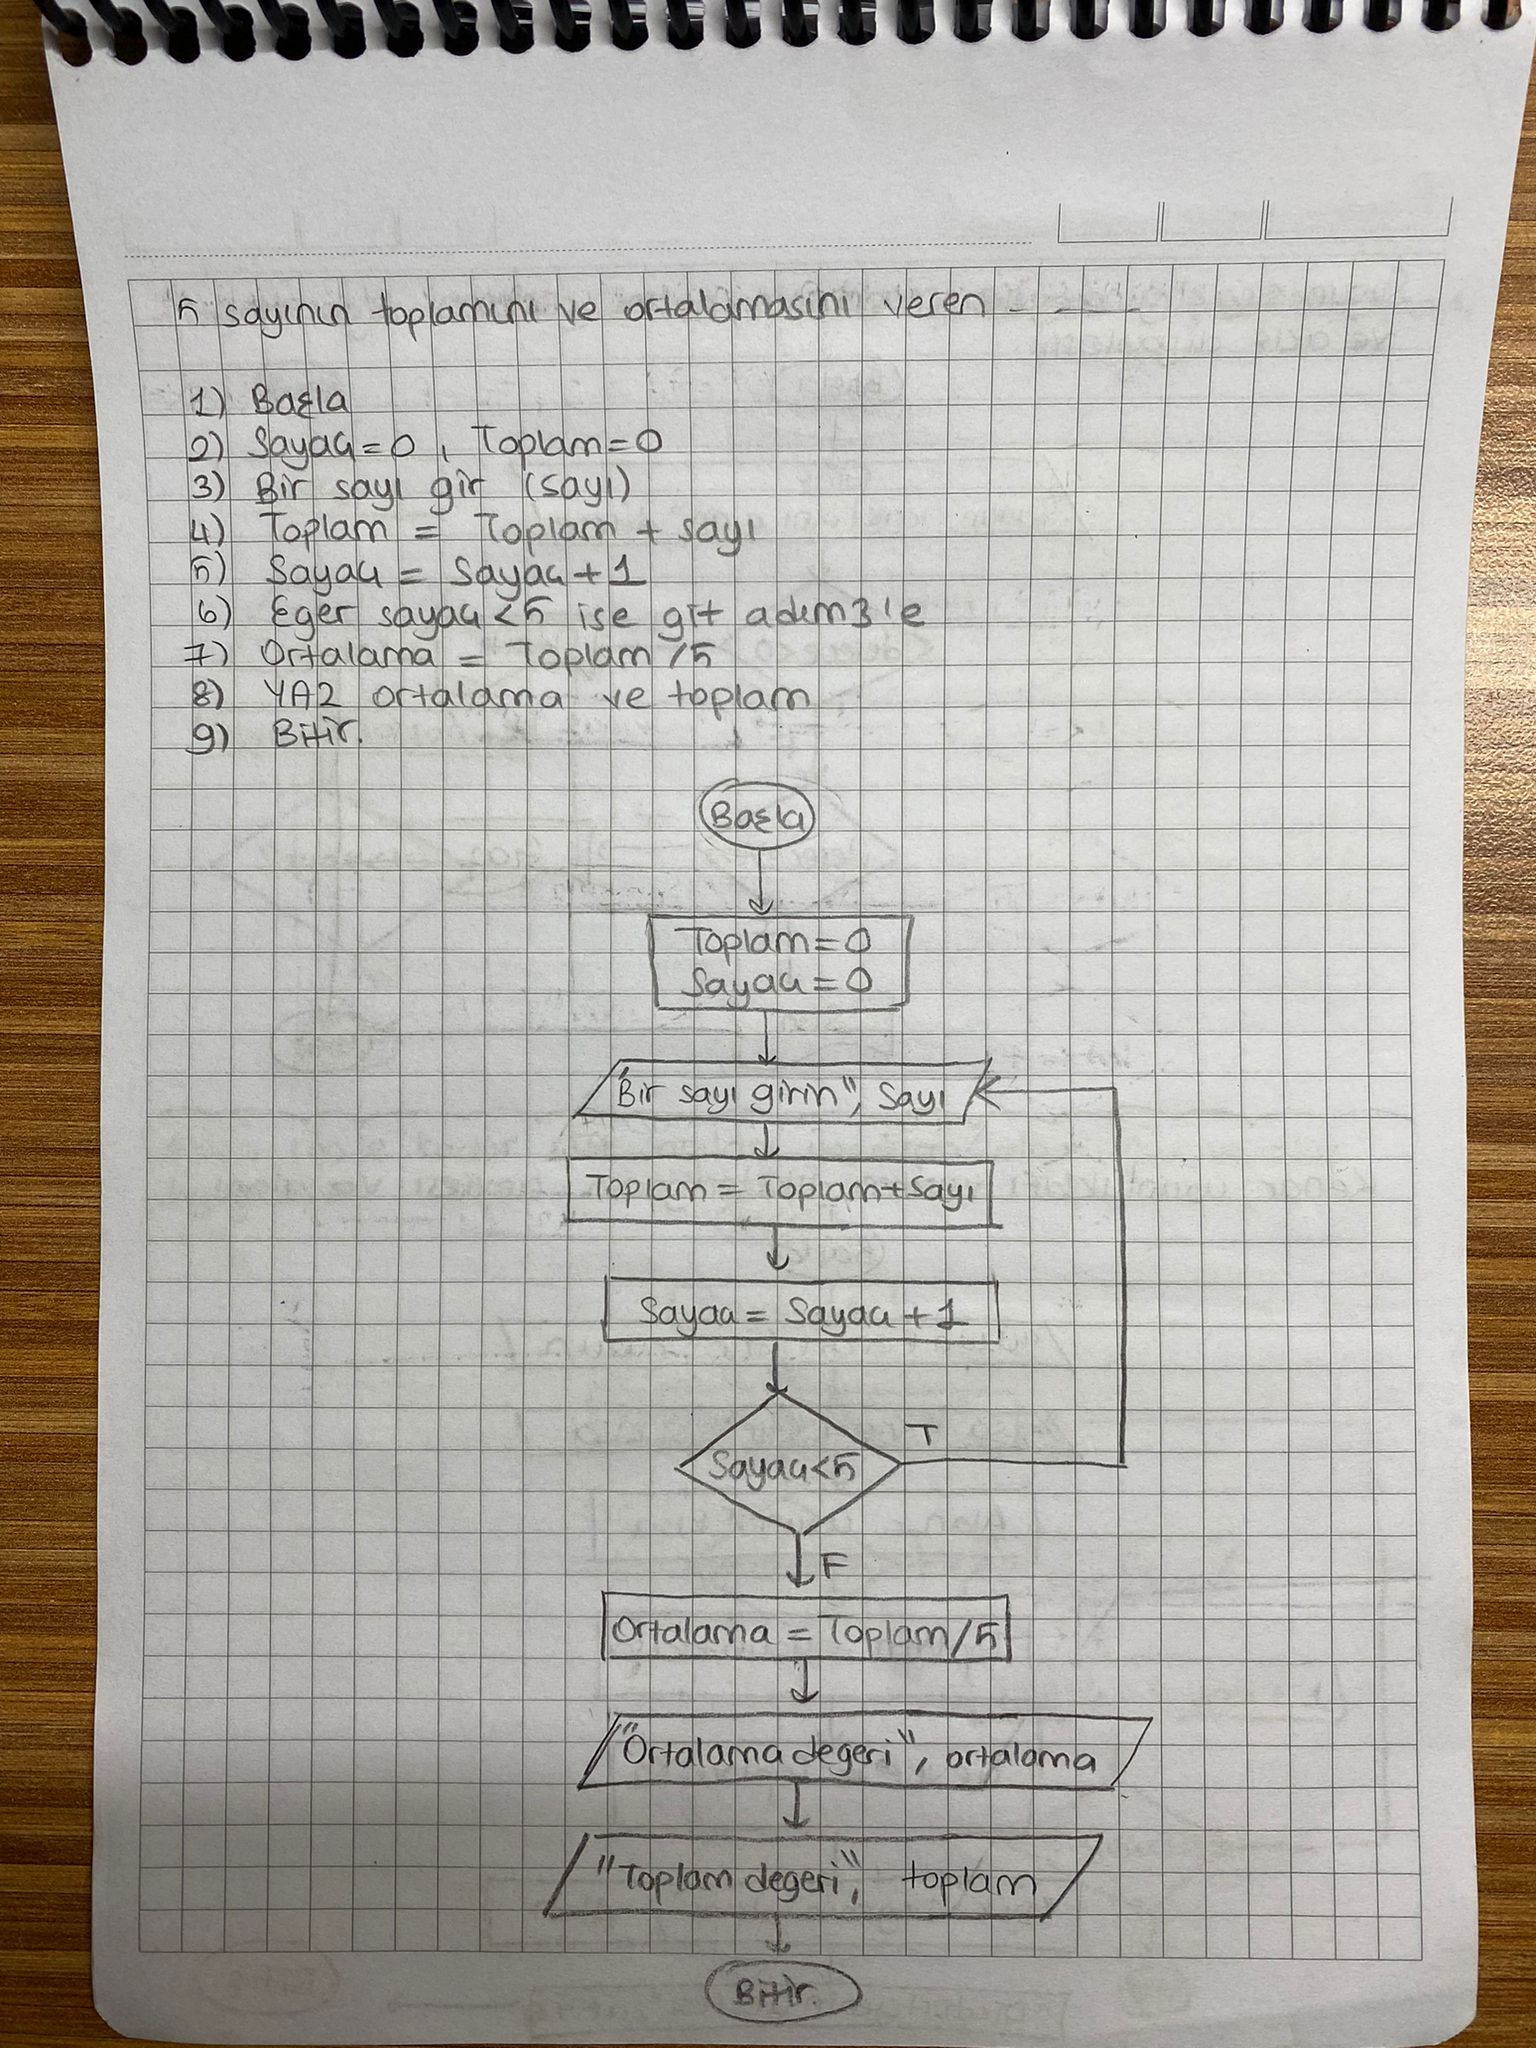 5 sayının toplamını ve ortalamasını veren - - - -
1) Başla
2) Sayaç=0, Toplam=0
3) Bir sayı gir (sayı)
4) Toplam = Toplam + sayı
5) Sayaç = Sayaç+1
6) Eger sayaç<5 ise git adım3'e
7) Ortalama = Toplam/5
8) YAZ ortalama ve toplam
9) Bitir.
Başla
Toplam=0
Sayaç=0
"Bir sayı girin", Sayı
Toplam = Toplam+Sayı
Sayaç = Sayaç+1
Sayaç<5
T
F
Ortalama = Toplam/5
"Ortalama degeri", ortalama
"Toplam degeri", toplam
Bitir.